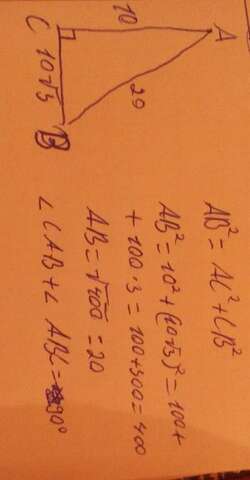 A
10
C
10√3
B
20
AB² = AC² + CB²
AB² = 10² + (10√3)² = 100 +
+ 100 · 3 = 100 + 300 = 400
AB = √400 = 20
∠CAB + ∠ABC = 90°